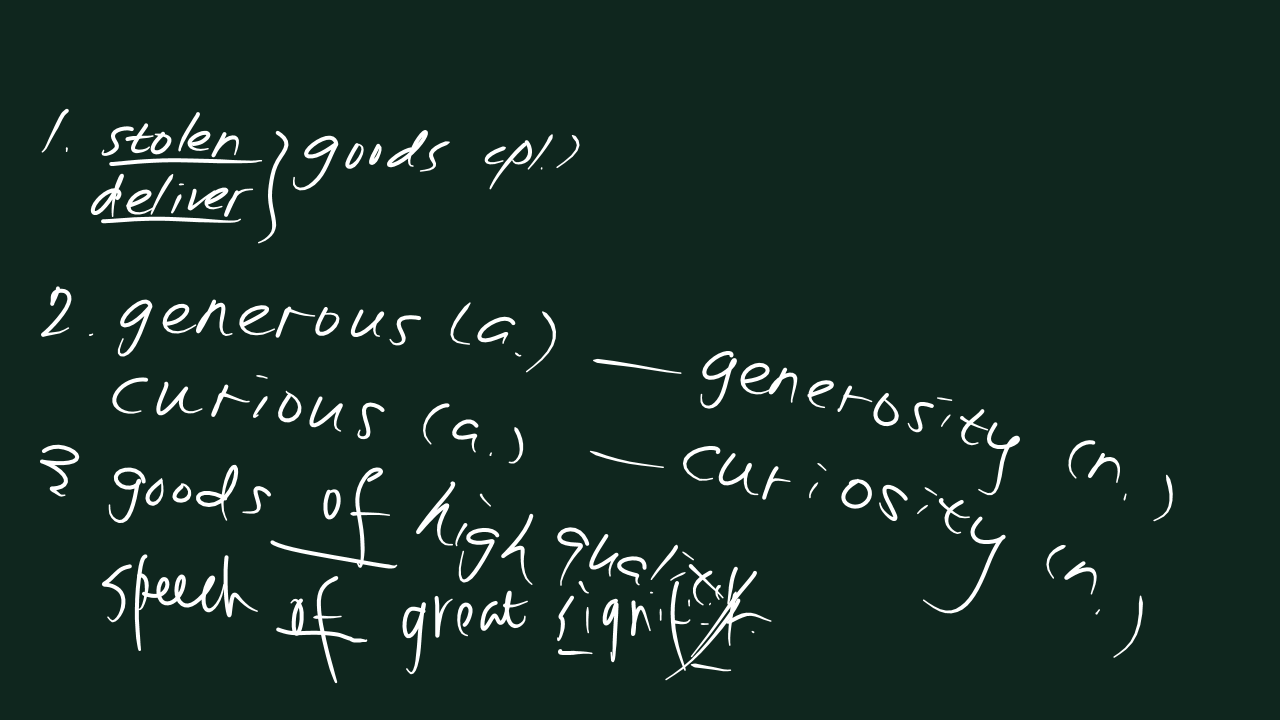 1. stolen } goods (pl.)
deliver
2. generous (a.) — generosity (n.)
curious (a.) — curiosity (n.)
3 goods of high quality
speech of great